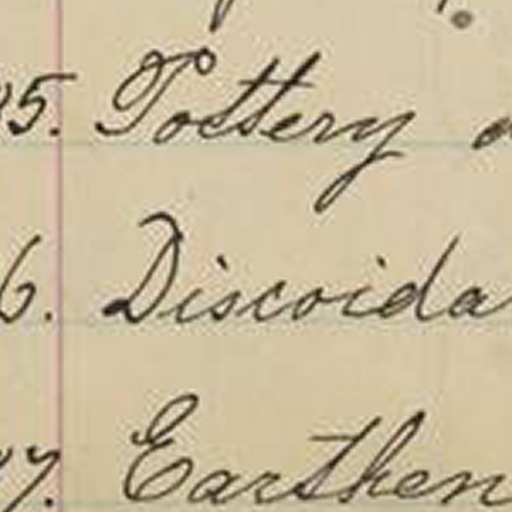 5. Pottery
6. Discoida
7. Earthen